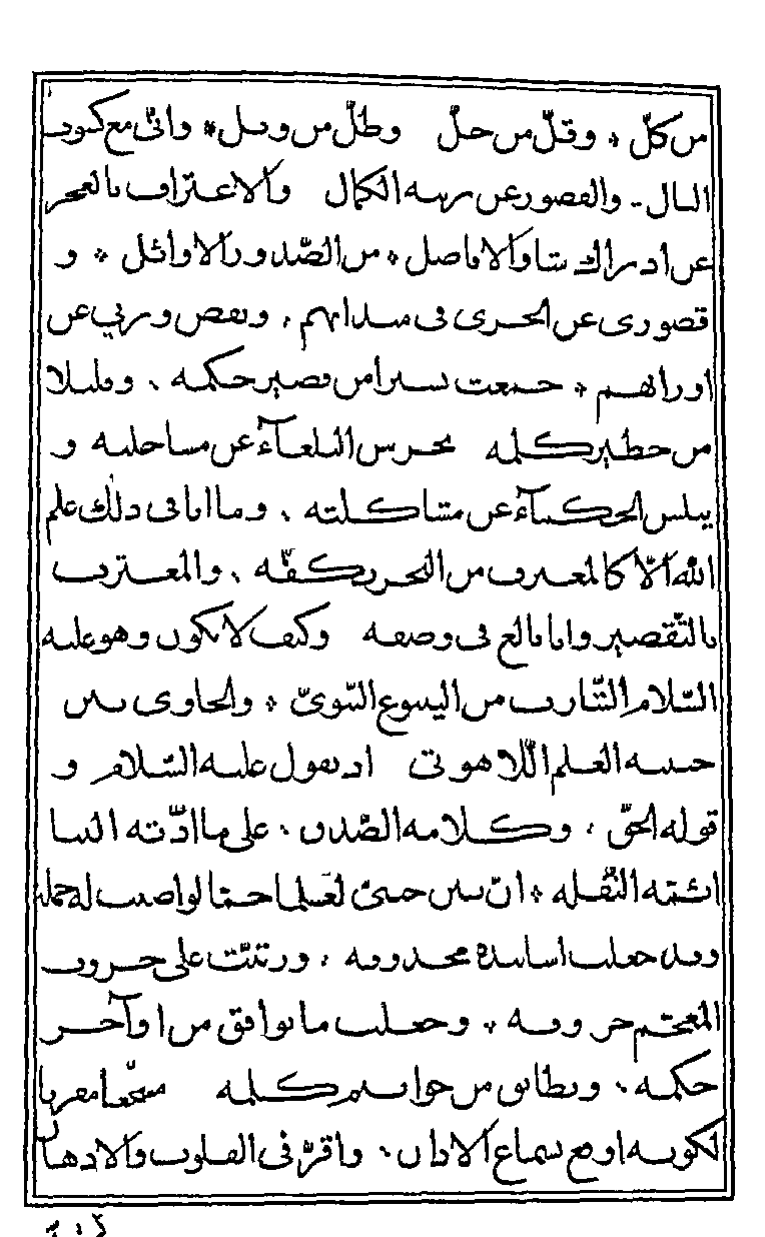 من كلّ * وقلّ من جلّ وطلّ من وبل * وانّى مع كسوف
البال - والقصور عن رتبه الكمال والاعتراف بالعجز
عن ادراك شاو الافاضل * من الصّدور الاوائل * و
قصورى عن الجرى فى ميدانهم ، ونقص وزنى عن
اوزانهم * جمعت يسيرا من قصير حكمه ، وقليلا
من خطير كلمه يخرس البلغآء عن مساجلته و
يبلس الحكمآء عن مشاكلته ، وما انا فى ذلك علم
الله الّا كالمغترف من البحر بكفّه ، والمعترف
بالتّقصير وان بالغ فى وصفه وكيف لا يكون وهو عليه
السّلام الشّارب من الينبوع النّبوىّ * والحاوى بين
جنبيه العلم اللّاهوتى اذ يقول عليه السّلام و
قوله الحقّ ، وكلامه الصّدق ، على ما ادّته الينا
ائمّته النّقله * انّ بين جنبىّ لعلما جمّا لو اصبت له حمله
وقد جعلت اسانيده محذوفه ، ورتبّت على حروف
المعجم حروفه * وجعلت ما توافق من اوآخر
حكمه ، وتطابق من خواتيم كلمه مسجّعا مقربا
لكونه اوقع بسماع الاذان ، واقرّ فى القلوب والاذهان